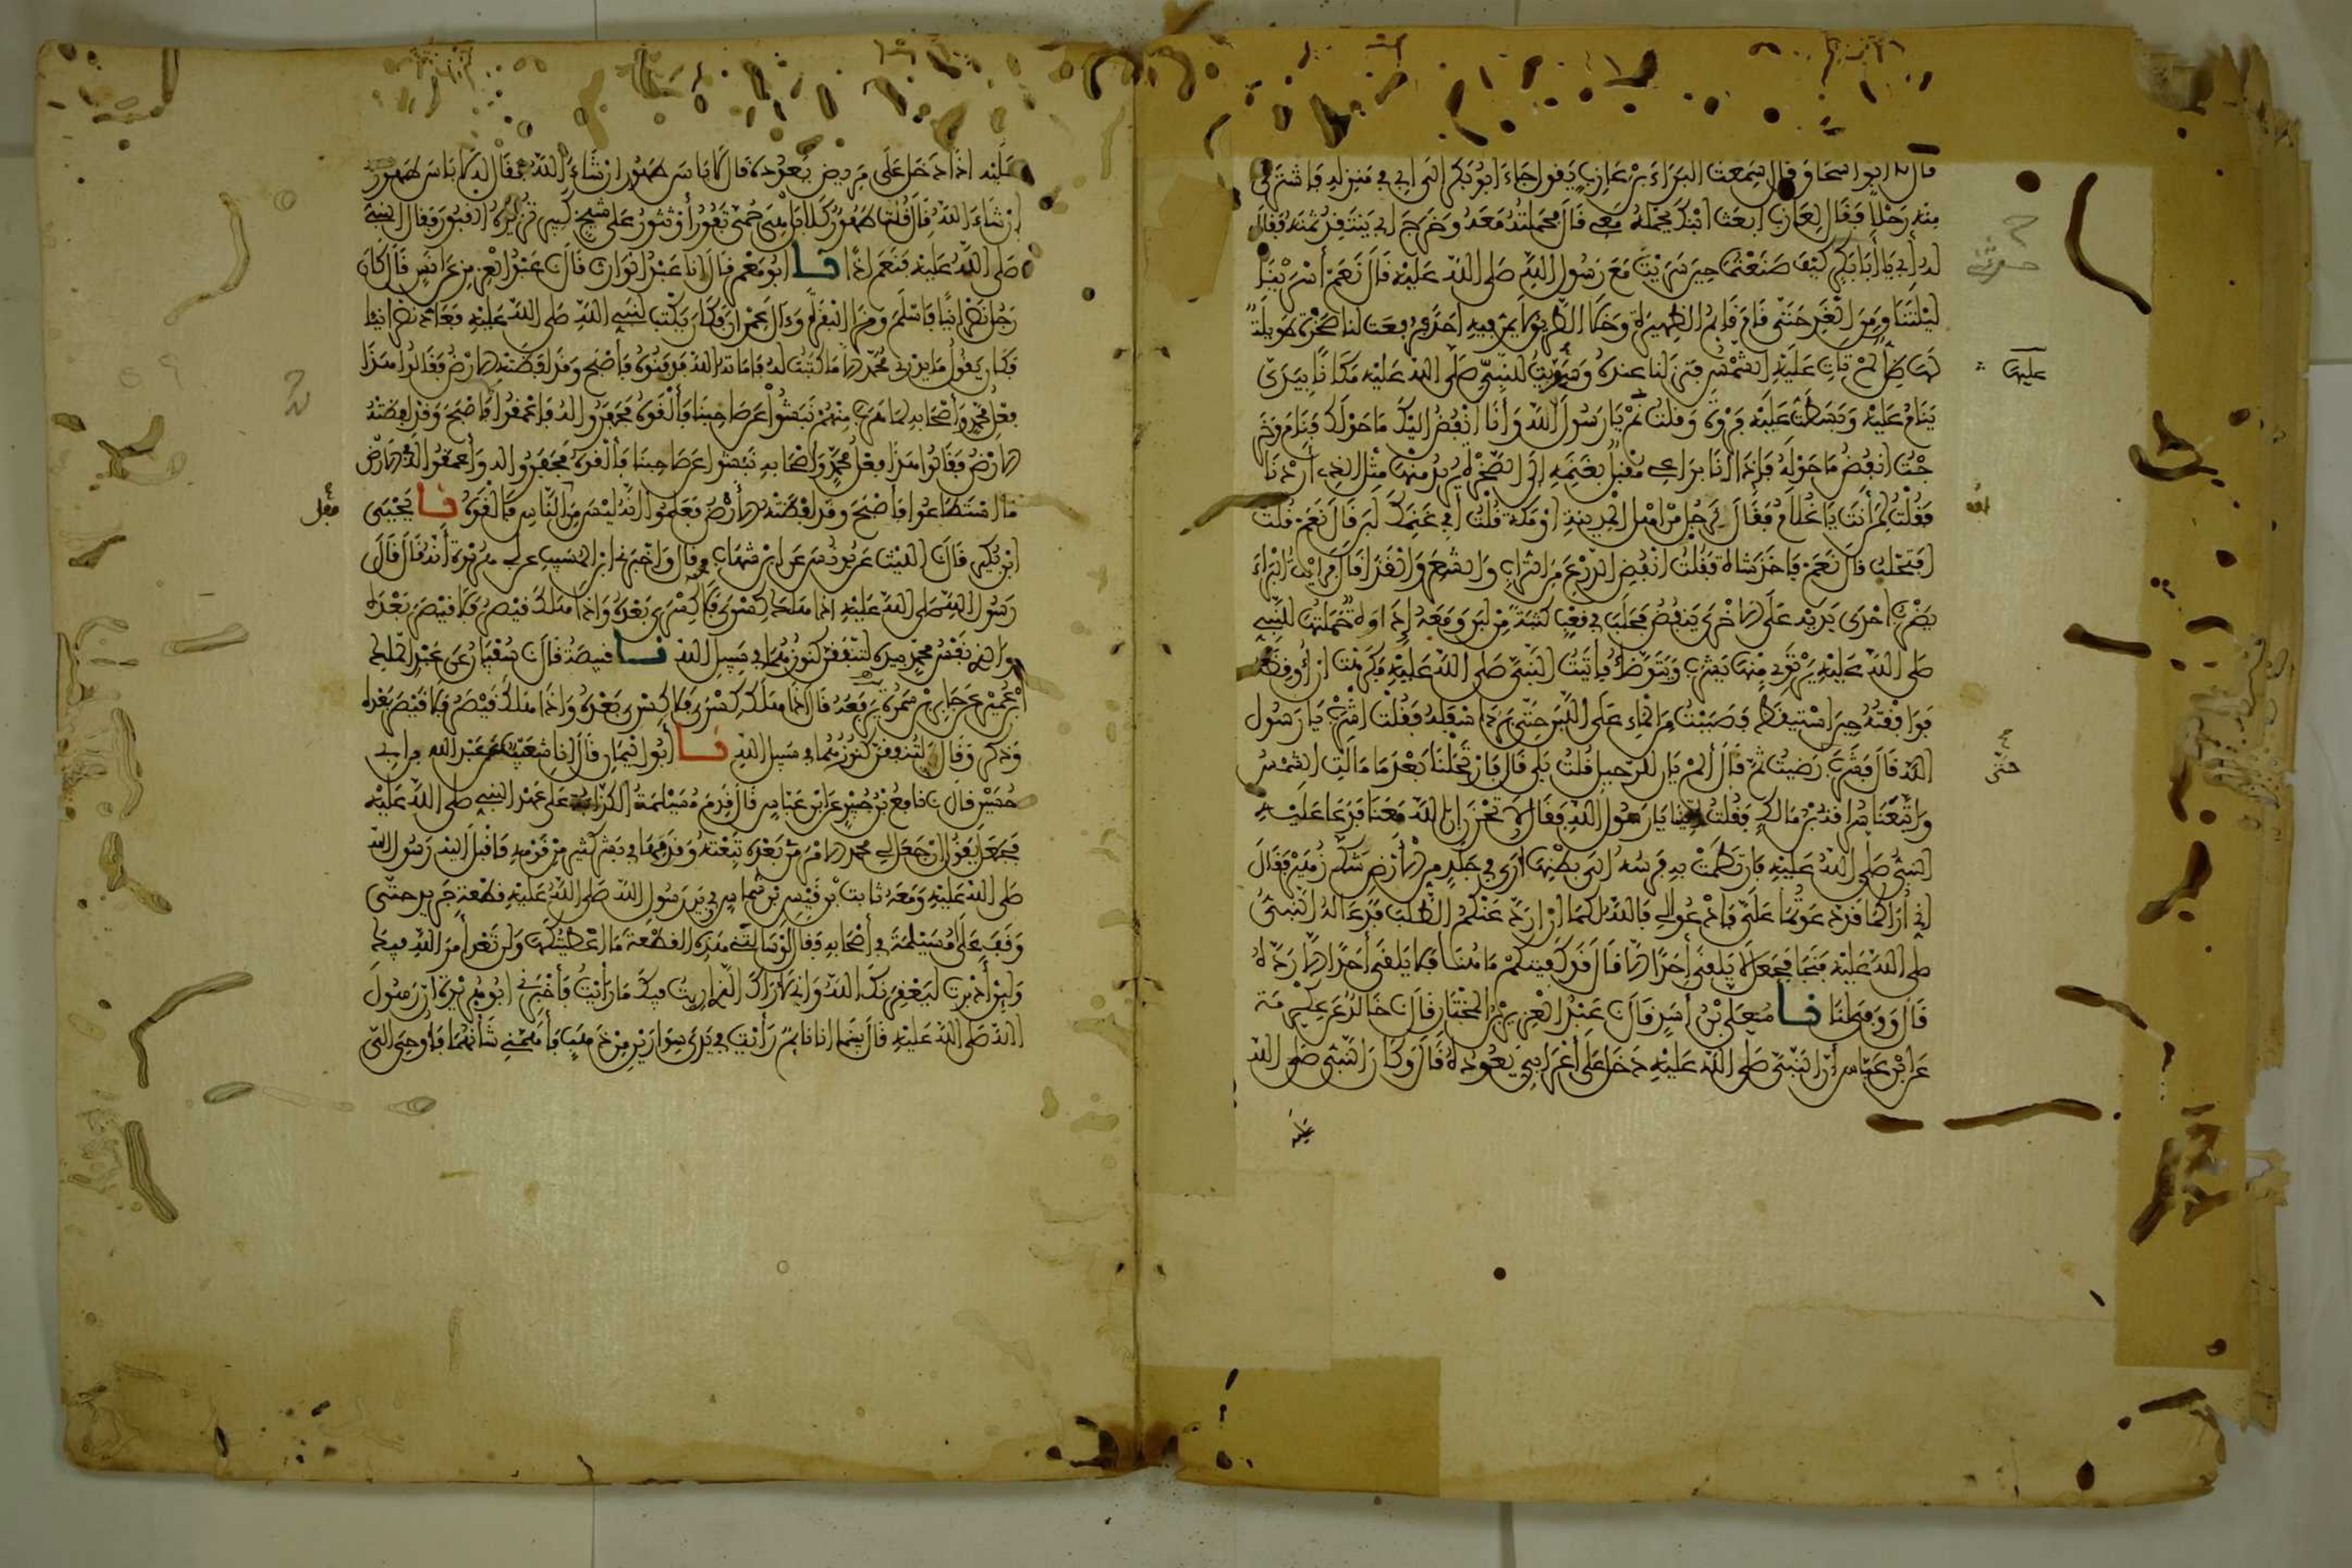 قال نا ابو اسحاق قال سمعت البراء بن عازب يقول جاء ابو بكر الى ابي في منزله فاشترى
منه رحلا فقال لعازب ابعث ابنك يحمله معي قال فحملته معه وخرج ابي ينتقد ثمنه فقال
له ابي يا أبا بكر كيف صنعتما حين سريت مع رسول الله صلى الله عليه قال نعم أسرينا
ليلتنا ومن الغد حتى قام قايم الظهيرة وخلا الطريق لا يمر فيه احد فرفعت لنا صخرة طويلة
لها ظل لم تات عليه الشمس فنزلنا عنده وسويت للنبي صلى الله عليه مكانا بيدي
عليها
ينام عليه وبسطت عليه فروة وقلت نم يا رسول الله وأنا انفض اليك ما حولك فنام وخر
جت انفض ما حوله فإذا انا براعي مقبل بغنمه الى الصخرة يريد منها مثل الذي أردنا
فقلت لمن أنت يا غلام فقال لرجل من اهل المدينة او مكة قلت أفي غنمك لبن قال نعم قلت
افتحلب قال نعم فاخذ شاة فقلت انفض الضرع من التراب والشعر والقذا قال فرايت البراء
يضرب احدى يديه على الاخرى ينفض فحلب في قعب كثبة من لبن ومعه إداوة حملتها للنبي
صلى الله عليه يرتوي منها يشرب ويتوضأ فأتيت النبي صلى الله عليه فكرهت ان أوقظه
فوافقته حين استيقظ فصببت من الماء على اللبن حتى برد اسفله فقلت اشرب يا رسول
حتى
الله قال فشرب حتى رضيت ثم قال ألم يان للرحيل قلت بلى قال فارتحلنا بعد ما مالت الشمس
واتبعنا سراقة بن مالك فقلت أتينا يا رسول الله فقال لا تحزن إن الله معنا فدعا عليه
النبي صلى الله عليه فارتطمت به فرسه الى بطنها أرى في جلد من الأرض شك زهير فقال
إني أراكما قد دعوتما علي فادعوا لي فالله لكما ان ارد عنكما الطلب فدعا له النبي
صلى الله عليه فنجا فجعل لا يلقى أحدا الا قال قد كفيتكم ما هنا فلا يلقى أحدا الا رده
قال ووفى لنا نا معلى بن أسد قال نا عبد العزيز بن المختار قال نا خالد عن عكرمة
عن ابن عباس أن النبي صلى الله عليه دخل على أعرابي يعوده قال وكان النبي صلى الله
عليه
عليه اذا دخل على مريض يعوده قال لا باس طهور ان شاء الله فقال له لا باس طهور
إن شاء الله قال قلت طهور كلا بل هي حمى تفور أو تثور على شيخ كبير تزيره القبور فقال النبي
صلى الله عليه فنعم اذا نا ابو معمر قال نا عبد الوارث قال نا عبد العزيز عن انس قال كان
رجل نصرانيا فاسلم وقرا البقرة وءال عمران فكان يكتب للنبي صلى الله عليه فعاد نصرانيا
فكان يقول ما يدري محمد الا ما كتبت له فاماته الله فدفنوه فأصبح وقد لفظته الارض فقالوا هذا
فعل محمد وأصحابه لما هرب منهم نبشوا عن صاحبنا فألقوه فحفروا له فاعمقوا فأصبح وقد لفظته
الارض فقالوا هذا فعل محمد وأصحابه نبشوا عن صاحبنا فألقوه فحفروا له وأعمقوا له في الارض
ما استطاعوا فأصبح وقد لفظته الأرض فعلموا أنه ليس من الناس فالقوه نا يحيى
ابن بكير قال نا الليث عن يونس عن ابن شهاب قال واخبرني ابن المسيب عن ابي هريرة أنه قال قال
رسول الله صلى الله عليه اذا هلك كسرى فلا كسرى بعده واذا هلك قيصر فلا قيصر بعده
والذي نفس محمد بيده لتنفقن كنوزهما في سبيل الله نا قبيصة قال نا سفيان عن عبد الملك
ابن عمير عن جابر بن سمرة يرفعه قال اذا هلك كسرى فلا كسرى بعده واذا هلك قيصر فلا قيصر بعده
وذكر وقال لتنفقن كنوزهما في سبيل الله نا أبو اليمان قال انا شعيب عن عبد الله بن ابي
حسين قال نا نافع بن جبير عن ابن عباس قال قدم مسيلمة الكذاب على عهد النبي صلى الله عليه
فجعل يقول إن جعل لي محمد الامر من بعده تبعته وقدمها في بشر كثير من قومه فاقبل اليه رسول الله
صلى الله عليه ومعه ثابت بن قيس بن شماس وفي يد رسول الله صلى الله عليه قطعة جريد حتى
وقف على مسيلمة في أصحابه فقال لو سالتني هذه القطعة ما اعطيتكها ولن تعدو أمر الله فيك
ولين أدبرت ليعقرنك الله وإني لأراك الذي أريت فيك ما رأيت فأخبرني ابو هريرة أن رسول
الله صلى الله عليه قال بينما انا نايم رأيت في يدي سوارين من ذهب فأهمني شأنهما فأوحي الي